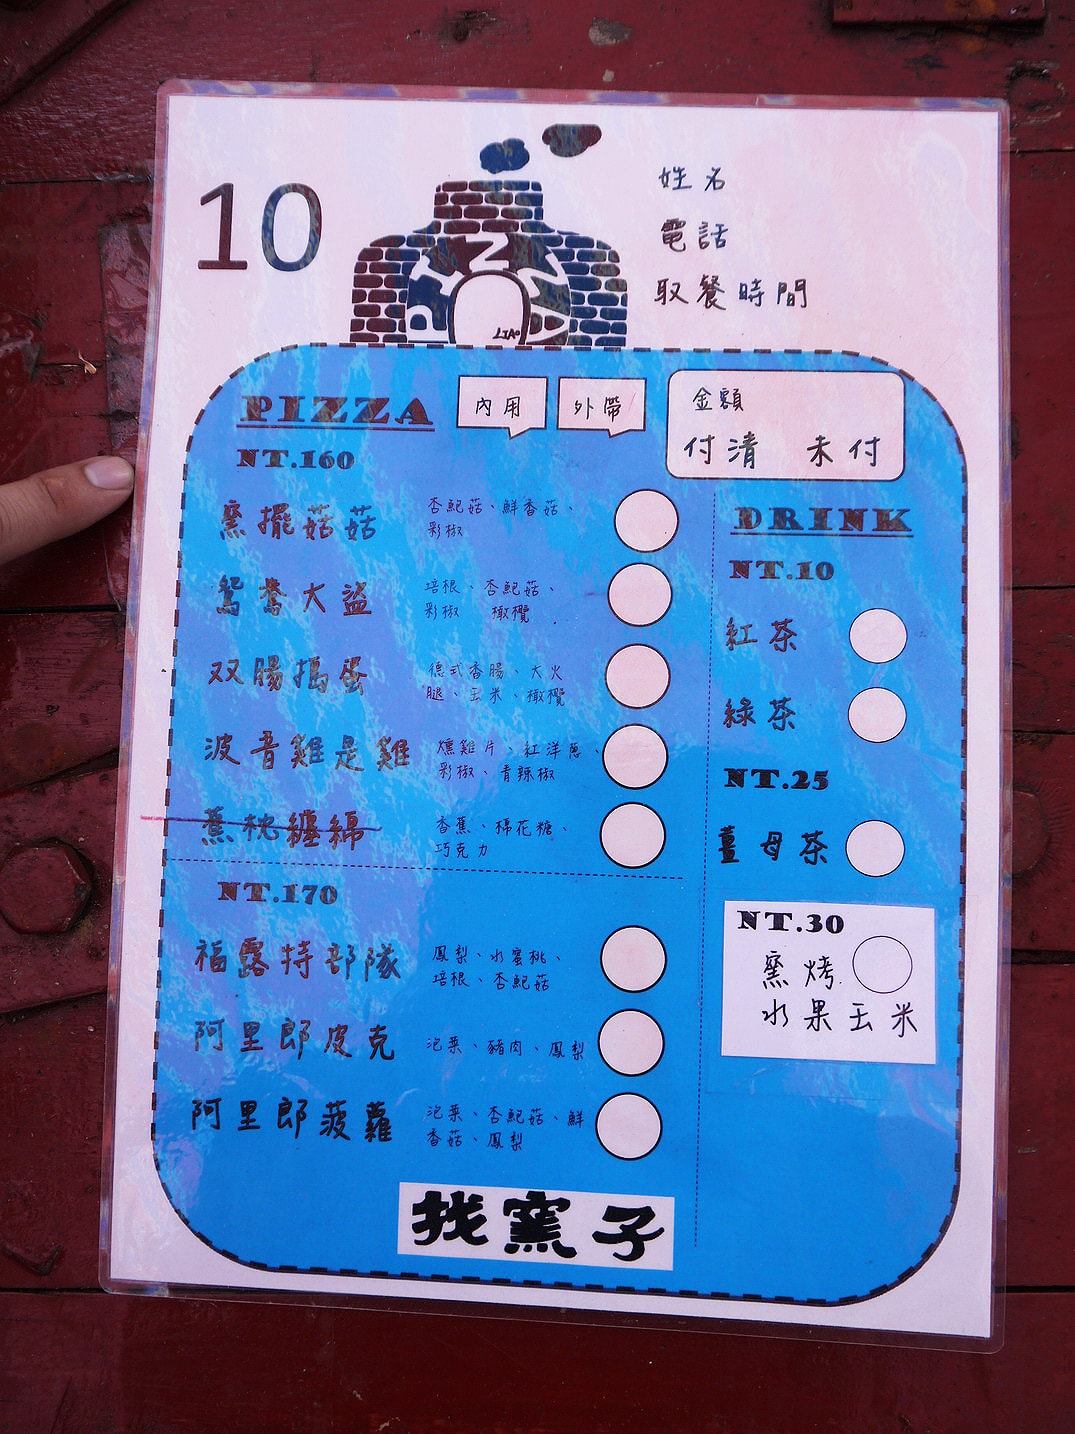 10
PIZZA
LIAO
姓名
電話
取餐時間
PIZZA
內用
外帶
金額
付清 未付
NT.160
窯擺菇菇
杏鮑菇、鮮香菇、
彩椒
鴛鴦大盜
培根、杏鮑菇、
彩椒 橄欖
双腸搗蛋
德式香腸、大火
腿、玉米、橄欖
波音雞是雞
燻雞片、紅洋蔥、
彩椒、青辣椒
蕉枕纏綿
香蕉、棉花糖、
巧克力
NT.170
福露特部隊
鳳梨、水蜜桃、
培根、杏鮑菇
阿里郎皮克
泡菜、豬肉、鳳梨
阿里郎菠蘿
泡菜、杏鮑菇、鮮
香菇、鳳梨
DRINK
NT.10
紅茶
綠茶
NT.25
薑母茶
NT.30
窯烤
水果玉米
找窯子